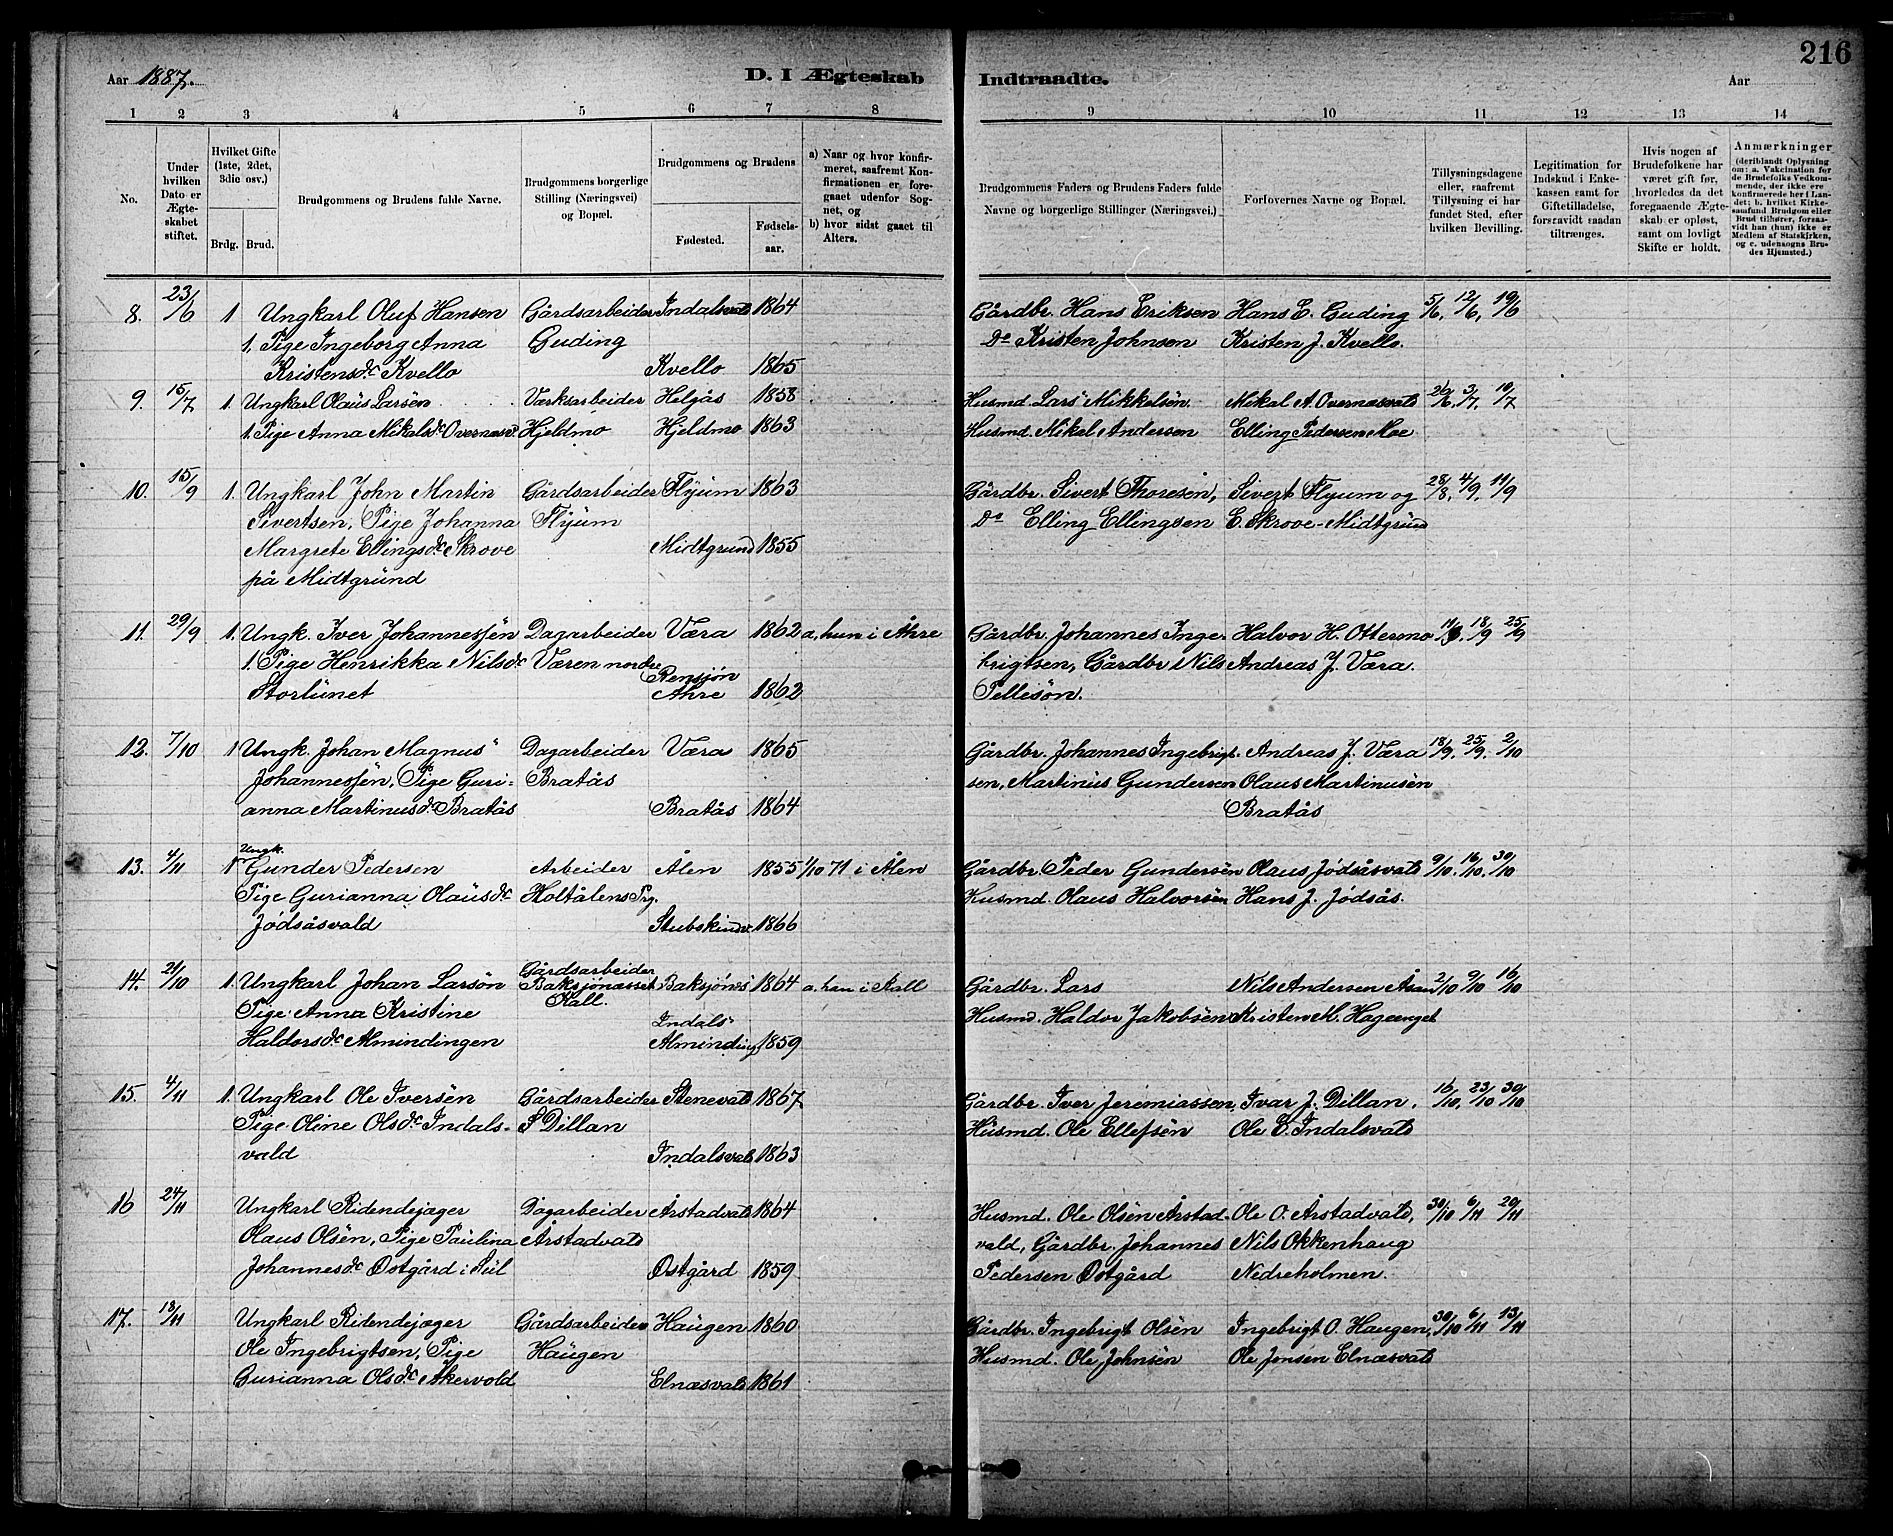 216
Aar 1887.
D. I Ægteskab Indtraadte.
Aar
1 2 3 4 5 6 7 8 9 10 11 12 13 14
No.
Under hvilken Dato er Ægteskabet stiftet.
Hvilket Gifte (1ste, 2det, 3die osv.)
Brdg. Brud.
Brudgommens og Brudens fulde Navne.
Brudgommens borgerlige Stilling (Næringsvei) og Bopæl.
Brudgommens og Brudens
Fødested. Fødselsaar.
a) Naar og hvor konfirmeret, saafremt Konfirmationen er foregaaet udenfor Sognet, og
b) hvor sidst gaaet til Alters.
Brudgommens Faders og Brudens Faders fulde Navne og borgerlige Stillinger (Næringsvei.)
Forlovernes Navne og Bopæl.
Tillysningsdagene eller, saafremt Tillysning ei har fundet Sted, efter hvilken Bevilling.
Legitimation for Indskud i Enkekassen samt for Giftetilladelse, forsaavidt saadan tiltrænges.
Hvis nogen af Brudefolkene har været gift før, hvorledes da det foregaaende Ægteskab er opløst, samt om lovligt Skifte er holdt.
Anmærkninger (deriblandt Oplysning om: a. Vakcination for de Brudefolks Vedkommende, der ikke ere konfirmerede her i Landet; b. hvilket Kirkesamfund Brudgom eller Brud tilhører, forsaavidt han (hun) ikke er Medlem af Statskirken, og c. udensogns Brudes Hjemsted.)
8. 23/6 1 Ungkarl Oluf Hansen Gårdsarbeider Indalsvald 1864 Gårdbr. Hans Eriksen Hans E. Guding 5/6, 12/6, 19/6
1. Pige Ingeborg Anna Guding Do Kristen Johnsen Kristen J. Kvello.
Kristensdr Kvello Kvello 1865
9. 15/7 1. Ungkarl Olaus Larsen Værksarbeider Helgås 1858 Husmd. Lars Mikkelsen. Mikal A. Overnæsvald 26/6, 3/7, 10/7
1. Pige Anna Mikalsdr Overnæsv. Hjeldmo Hjeldmo 1863 Husmd. Mikal Andersen Elling Pedersen Moe
10. 15/9 1. Ungkarl John Martin Gårdsarbeider Flyum 1863 Gårdbr. Sivert Thoresen, Sivert Flyum og 28/8, 4/9, 11/9
Sivertsen, Pige Johanna Flyum Do Elling Ellingsen E. Skrove-Midtgrund
Margrete Ellingsdr Skrove Midtgrund 1855
på Midtgrund
11. 29/9 1. Ungk. Iver Johannessen Dagarbeider Væra 1862 a, hun i Åhre Gårdbr. Johannes Inge- Halvor H. Ottermo 11/9, 18/9 25/9
1. Pige Henrikka Nilsdr Væren nordre Rensjøn brigtsen, Gårdbr Nils Andreas J. Væra.
Storlunet Åhre 1862 Pellisøn.
12. 7/10 1 Ungk. Johan Magnus Dagarbeider Væra 1865 Gårdbr. Johannes Ingebrigt- Andreas J. Væra 18/9, 25/9, 2/10
Johannessen, Pige Guri- Bratås sen, Martinus Gundersen Olaus Martinusen
anna Martinusdr Bratås Bratås 1864 Bratås
13. 4/11 1 Ungk. Gunder Pedersen Arbeider Ålen 1855 1/10 71 i Ålen Gårdbr. Peder Gundersen Olaus Jødsåsvald 9/10, 16/10, 30/10
Pige Gurianna Olausdr Holtålens Prg. Husmd. Olaus Halvorsen Hans J. Jødsås.
Jødsåsvald Stubskindv. 1866
14. 21/10 1. Ungkarl Johan Larsøn Gårdsarbeider Baksjønæsset Kall. Baksjønæs 1864 a, han i Kall Gårdbr. Lars Nils Andersen Åsan 2/10 9/10 16/10
Pige Anna Kristine Indals- Husmd. Haldor Jakobsen Kristen M. Hageenget
Haldorsdr Almindingen Alminding 1859
15. 4/11 1. Ungkarl Ole Iversen Gårdsarbeider Stenevald 1867 Gårdbr. Iver Jeremiassen, Ivar J. Dillan. 16/10, 23/10 30/10
Pige Oline Olsdr Indals- S Dillan Husmd. Ole Ellefsen Ole E. Indalsvald
vald Indalsvald 1863
16 24/11 Ungkarl Ridendejæger Dagarbeider Årstadvald 1864 Husmd. Ole Olsen Årstad- Ole O. Årstadvald, 30/10 6/11 20/11
Olaus Olsen, Pige Paulina Årstadvald vald, Gårdbr. Johannes Nils Okkenhaug
Johannesdr Østgård i Sul Østgård 1859 Pedersen Østgård Nedreholmen.
17. 18/11 Ungkarl Ridendejæger Gårdsarbeider Haugen 1860 Gårdbr. Ingebrigt Olsen Ingebrigt O. Haugen, 30/10 6/11 13/11
Ole Ingebrigtsen, Pige Haugen Husmd. Ole Johnsen Ole Jonsen Elnæsvald
Gurianna Olsdr Akervold Elnæsvald 1861